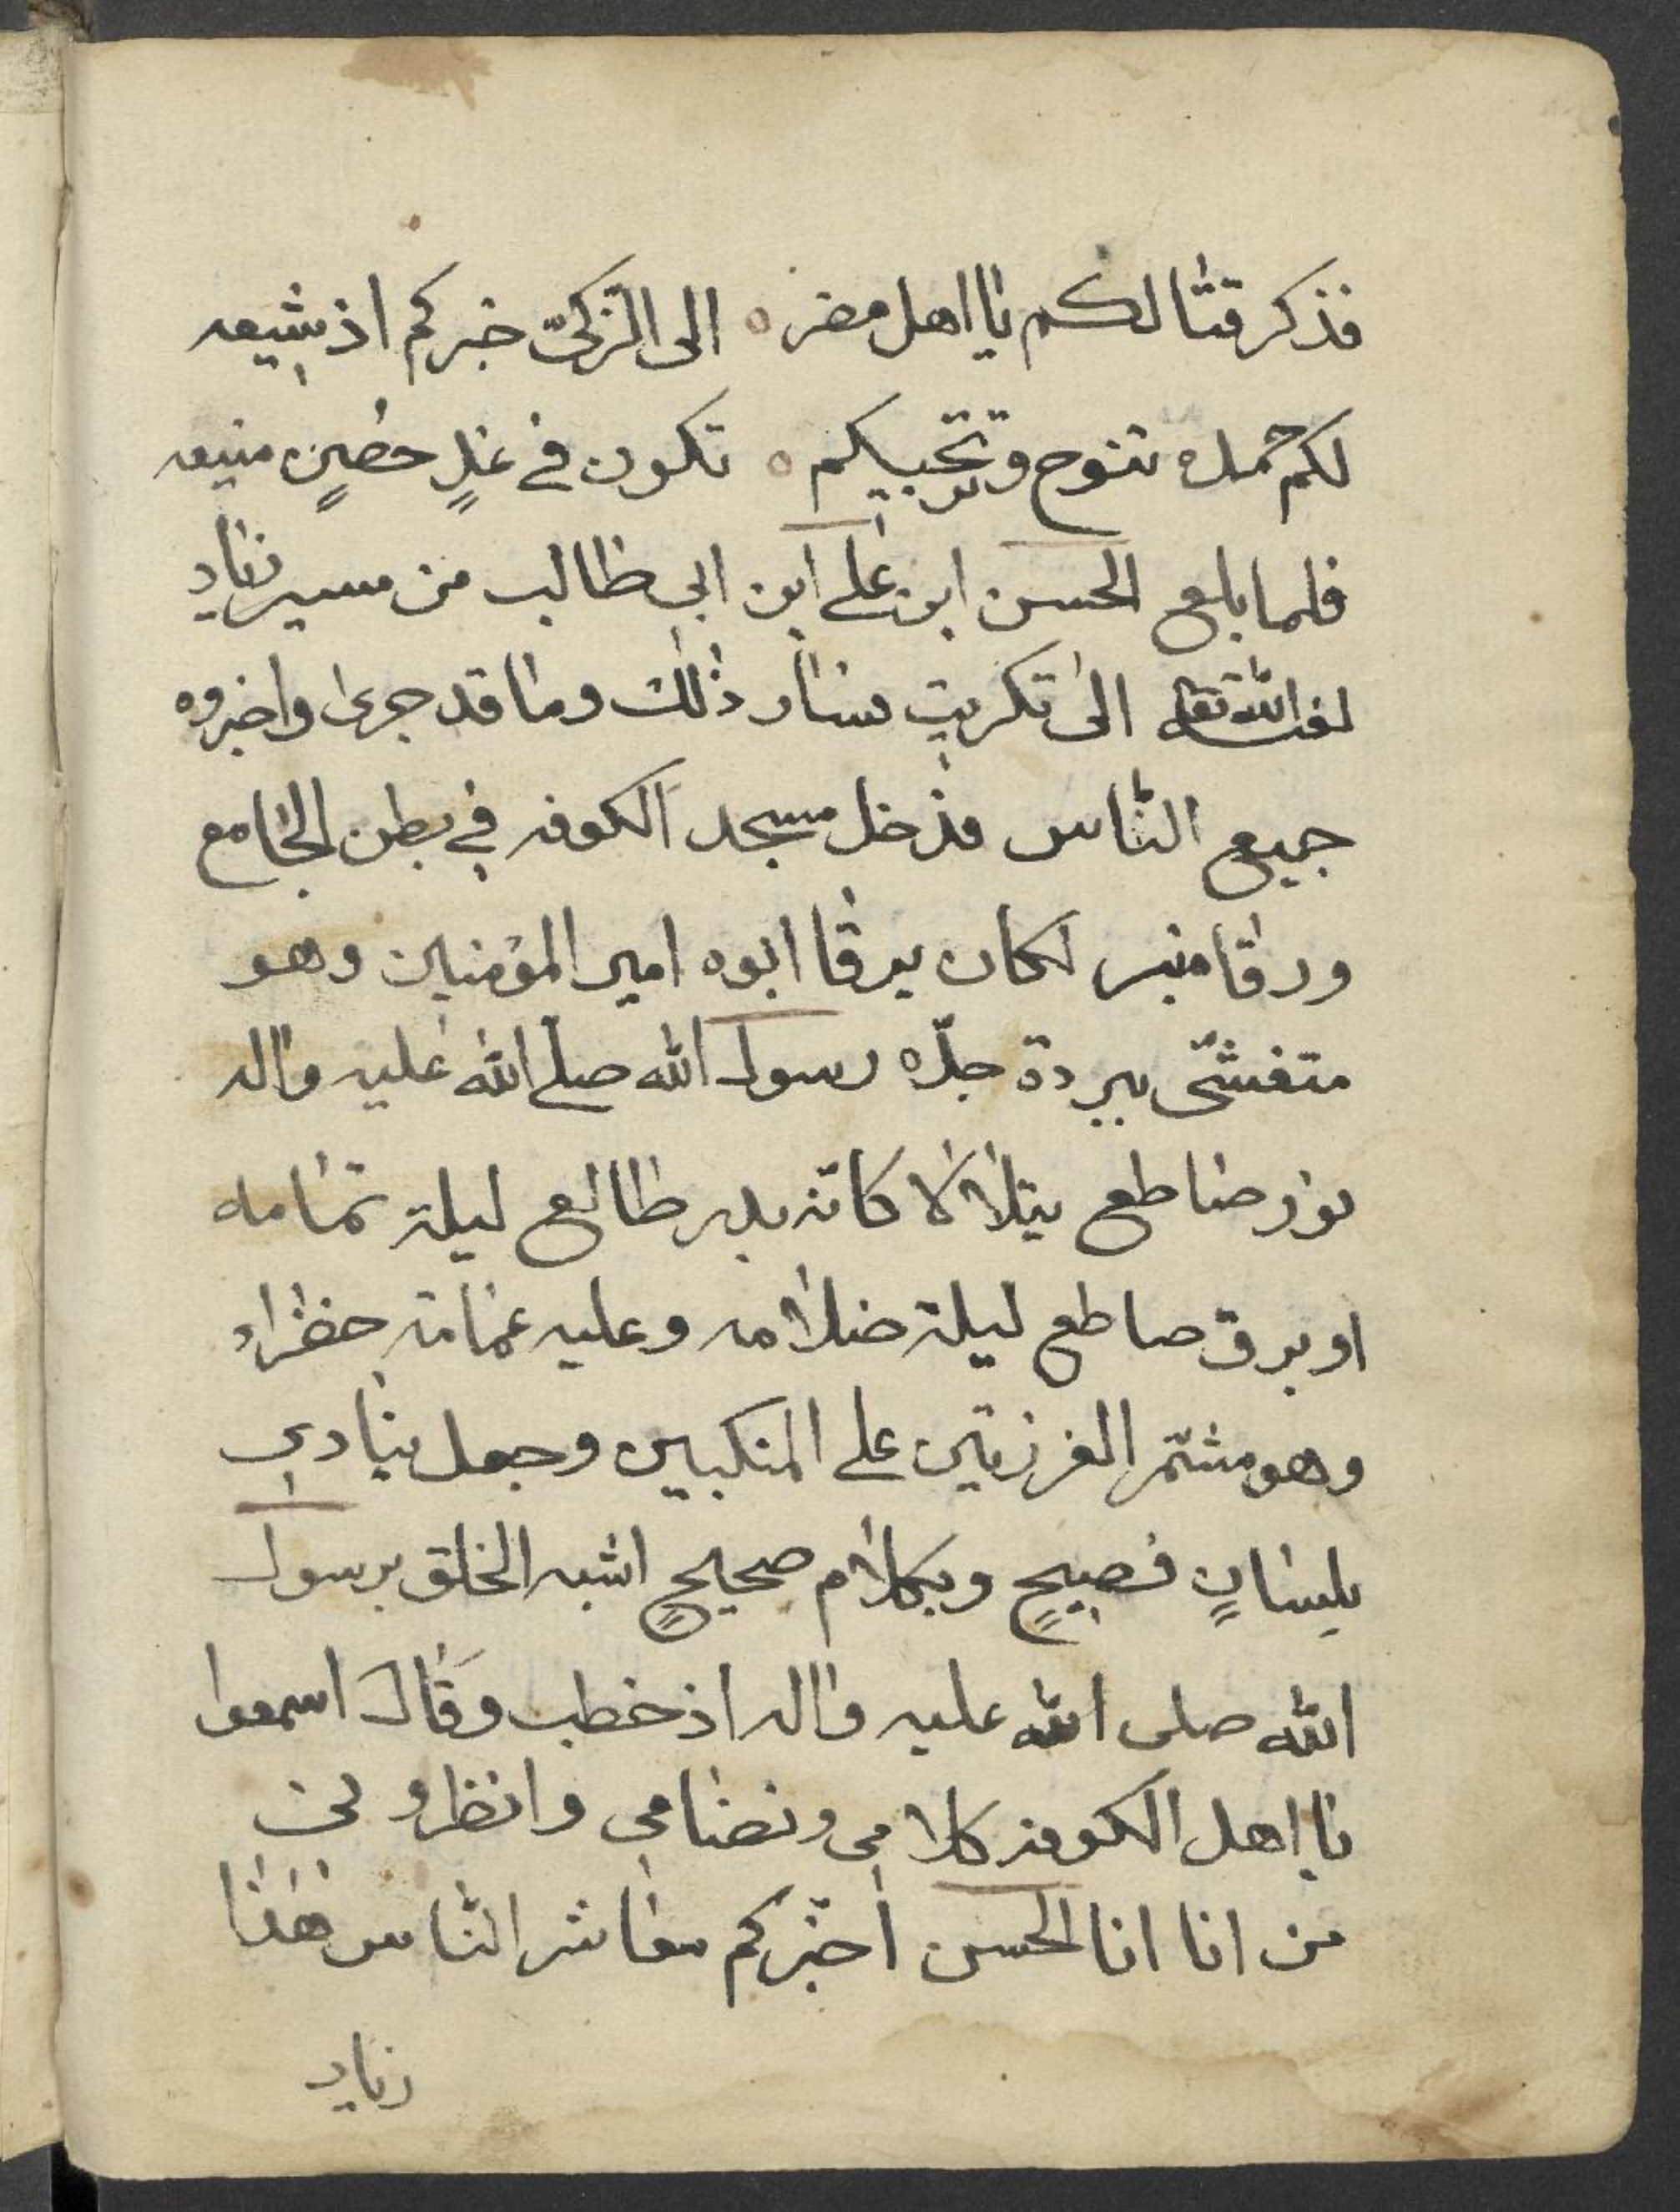 فذكر قتالكم يا اهل مضر ه الى الزكيّ خبركم اذيشيعه
لكم حمله تنوح وتجبيكم ه تكون في غدٍ حضينٍ منيعه
فلما بلغ الحسن ابن علي ابن ابي طالب من مسير زياد
لعنه الله تعا الى تكريت بسار ذلك وما قد جرى واخبروه
جميع الناس فدخل مسجد الكوفه في بطن الجامع
ورقا منبر لكان يرقا ابوه امير المؤمنين وهو
متغشّي ببردة جدّه رسول الله صلى الله عليه واله
نور ضاطع يتلألأ كانّه بدر طالع ليلة تمامه
او برق صاطع ليلة ضلامه وعليه عمامة خضراء
وهو مشمّر الغرزتين على المنكبين وجعل ينادي
بلسانٍ فصيحٍ وبكلام صحيحٍ اشبه الخلق برسول
الله صلى الله عليه واله اذ خطب وقال اسمعوا
يا اهل الكوفه كلامي ونضامي وانظروني
من انا انا الحسن اخبّركم معاشر الناس هذا
زياد